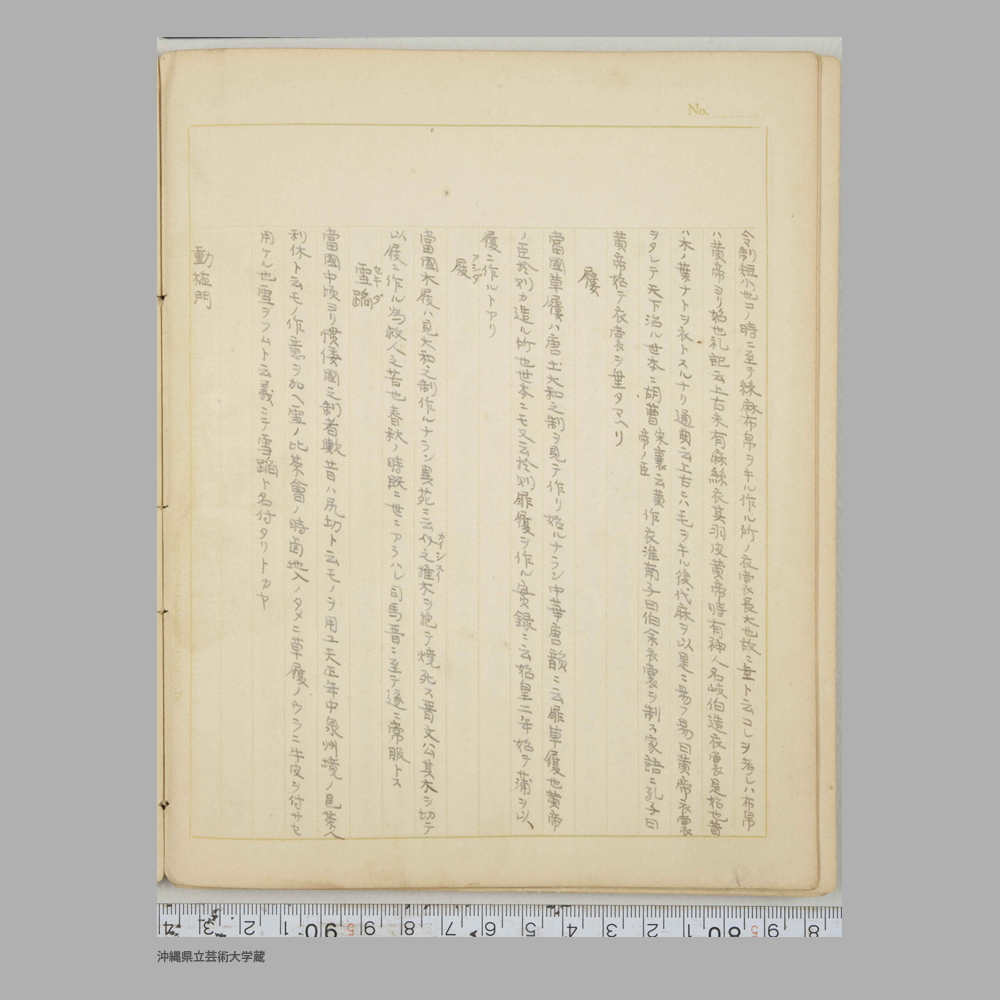 No.
令制短小也コノ時ニ至テ絲麻布帛ヲキル作ル所ノ衣裳長大也故ニ垂ト云コレヲ考レハ布帛
ハ黄帝ヨリ始也礼記云上古未有麻絲衣其羽皮黄帝時有神人名岐伯造衣裳是始也昔
ハ木ノ葉ナトヲ衣トスルナリ通典云上古ニハ毛ヲキル後代麻ヲ以是ニ易フ易曰黄帝衣裳
ヲタレテ天下治ル世本ニ胡曹 宋衷云黄帝ノ臣 作衣淮南子曰伯余衣裳ヲ制ス家語ニ孔子曰
黄帝始テ衣裳ヲ垂タマヘリ
屨
當國草屨ハ唐土大和之制ヲ見テ作リ始ルナラン中華書ニ云扉草屨也黄帝
ノ臣於則カ造ル所也世本ニモ又云於則扉屨ヲ作ル實録ニ云始皇二年始テ蒲ヲ以
屨ニ作ルトアリ
屐 アシダ
當國木屐ハ見大和之制作ルナラン異苑ニ云介之推 カイシスイ 木ヲ抱テ燒死ス晋文公其木ヲ切テ
以屐ニ作ル為救人之苦也春秋ノ時既ニ世ニアラハレ司馬晋ニ至テ遂ニ常服トス
雪踏 セキダ
當國中比ヨリ慣倭國之制者歟昔ハ尻切ト云モノヲ用ユ天正年中泉州境ノ邑茶人
利休ト云モノ作意ヲ加ヘ雪ノ比茶會ノ時鹵地入ノタメニ草屨ノウラニ牛皮ヲ付サセ
用ケル也雪ヲフムト云義ニテ雪踏ト名付タリトカヤ
動植門
沖縄県立芸術大学蔵